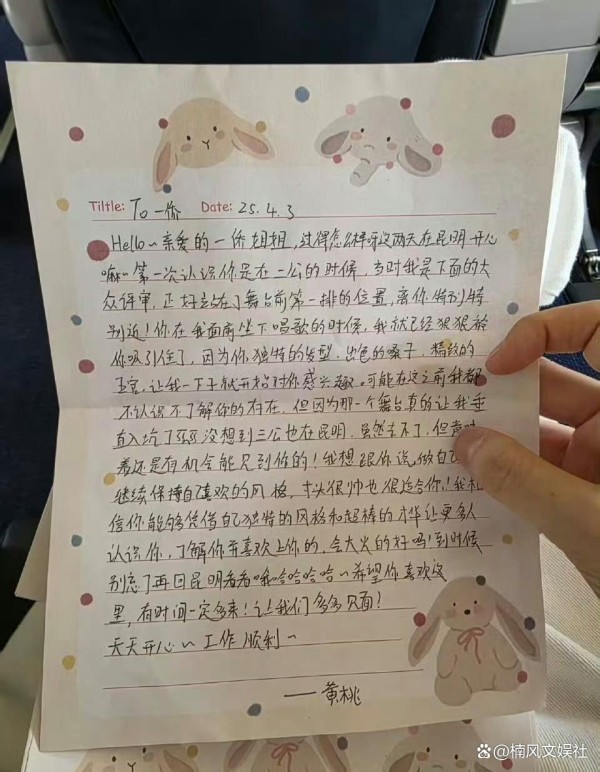 Tiltle: To 一侨 Date: 25.4.3
Hello~亲爱的一侨姐姐，过得怎么样呀这两天在昆明开心
嘛~第一次认识你是在二公的时候，当时我是下面的大
众评审，正好站在了舞台前第一排的位置，离你特别特
别近！你在我面前坐下唱歌的时候，我就已经狠狠被
你吸引住了，因为你独特的发型，出色的嗓子，精致的
五官，让我一下子就开始对你感兴趣。可能在这之前我都
不认识不了解你的存在，但因为那一个舞台真的让我垂
直入坑了巫巫没想到三公也在昆明，虽然去不了，但
着还是有机会能见到你的！我想跟你说，做自己
继续保持自己喜欢的风格，寸头很帅也很适合你！我相
信你能够凭借自己独特的风格和超棒的才华让更多人
认识你，了解你并喜欢上你的，会大火的好吗！到时候
别忘了再回昆明看看哦哈哈哈哈~希望你喜欢这
里，有时间一定多来！让我们多多见面！
天天开心~工作顺利~
——黄桃
@楠风文娱社